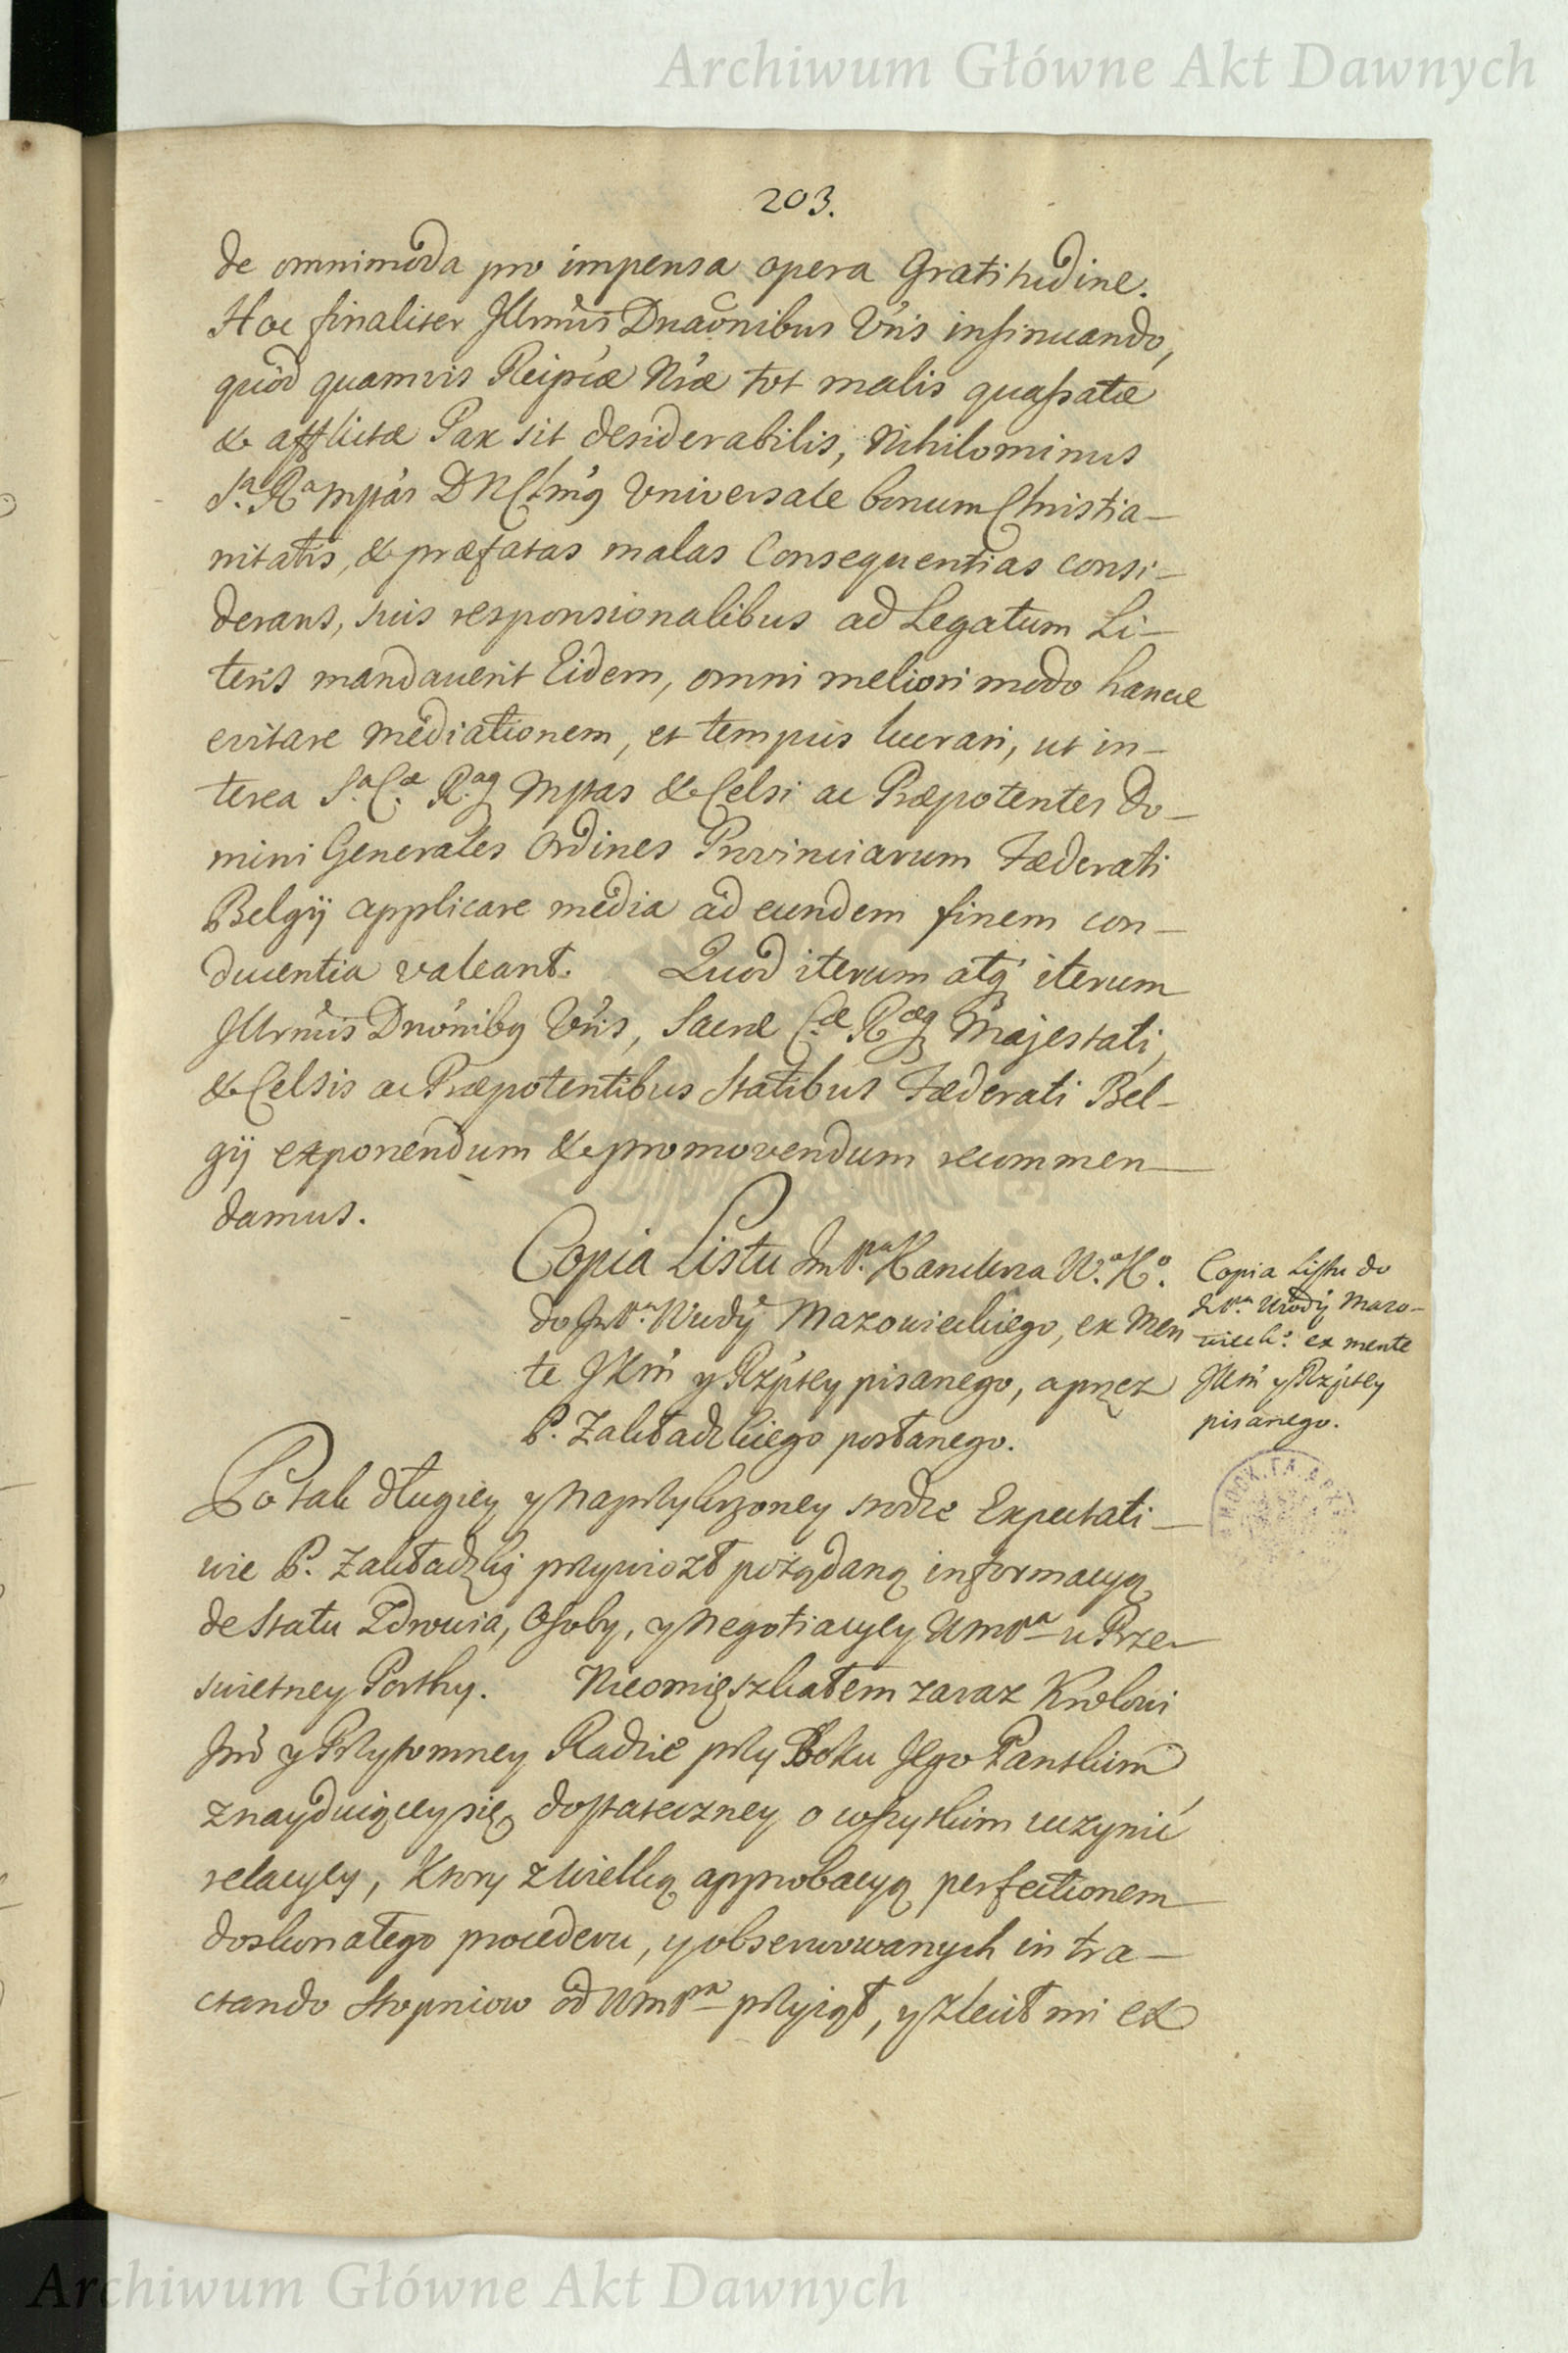 Archiwum Główne Akt Dawnych
203.
de omnimoda pro impensa opera Gratitudine.
Hoc finaliter Illrmis Dnaonibus Vris insinuando,
quod quamvis Reipcæ Nræ tot malis quassatæ
& afflictæ Pax sit desiderabilis, Nihilominus
S.a R.a Mptas DNClmg Universale bonum Christia-
nitatis, & præfatas malas Consequentias consi-
derans, suis responsionalibus ad Legatum Li-
teris mandaverit Eidem, omni meliori modo hancce
evitare Mediationem, et tempus lucrari, ut in-
terea S.a C.æ R.aq Mptas & Celsi ac Præpotentes Do-
mini Generales Ordines Provinciarum Fæderati
Belgij applicare media ad eundem finem con-
ducentia valeant. Quod iterum atq iterum
Illrmis Dnonibq Vris, Sacræ C.æ R.æq Majestati,
& Celsis ac Præpotentibus Statibus Fæderati Bel-
gij exponendum & promovendum recommen-
damus.
Copia Listu JmP.na Kanclerza W.o K.o
do JmP.na Wudy Mazowieckiego, ex Men
te JKm y Rzptey pisanego, a przez
P. Zakładzkiego posłanego.
Copia Listu do
JmP.na Wiody Mazo-
wieck.o ex mente
JKm y Rzptey
pisanego.
Po tak długiey y naprzykrzoney srodze Expectati-
wie P. Zakładzki przywiozł pożądaną informacyą
de Statu Zdrowia, Osoby, y Negotiacyey WmPa u Prze-
swietney Portky. Nieomięszkałem zaraz Krolowi
Jmo y Przytomney Radzie przy Boku Jego Panskim
znayduiącey się dostateczney o wszytkim uczynić
relacyey, Ktory z wielką approbacyą perfectionem
doskonałego procederu, y obserwowanych in tra-
ctando Stopniow od WmPa przyiął, y zlecił mi ex
Archiwum Główne Akt Dawnych